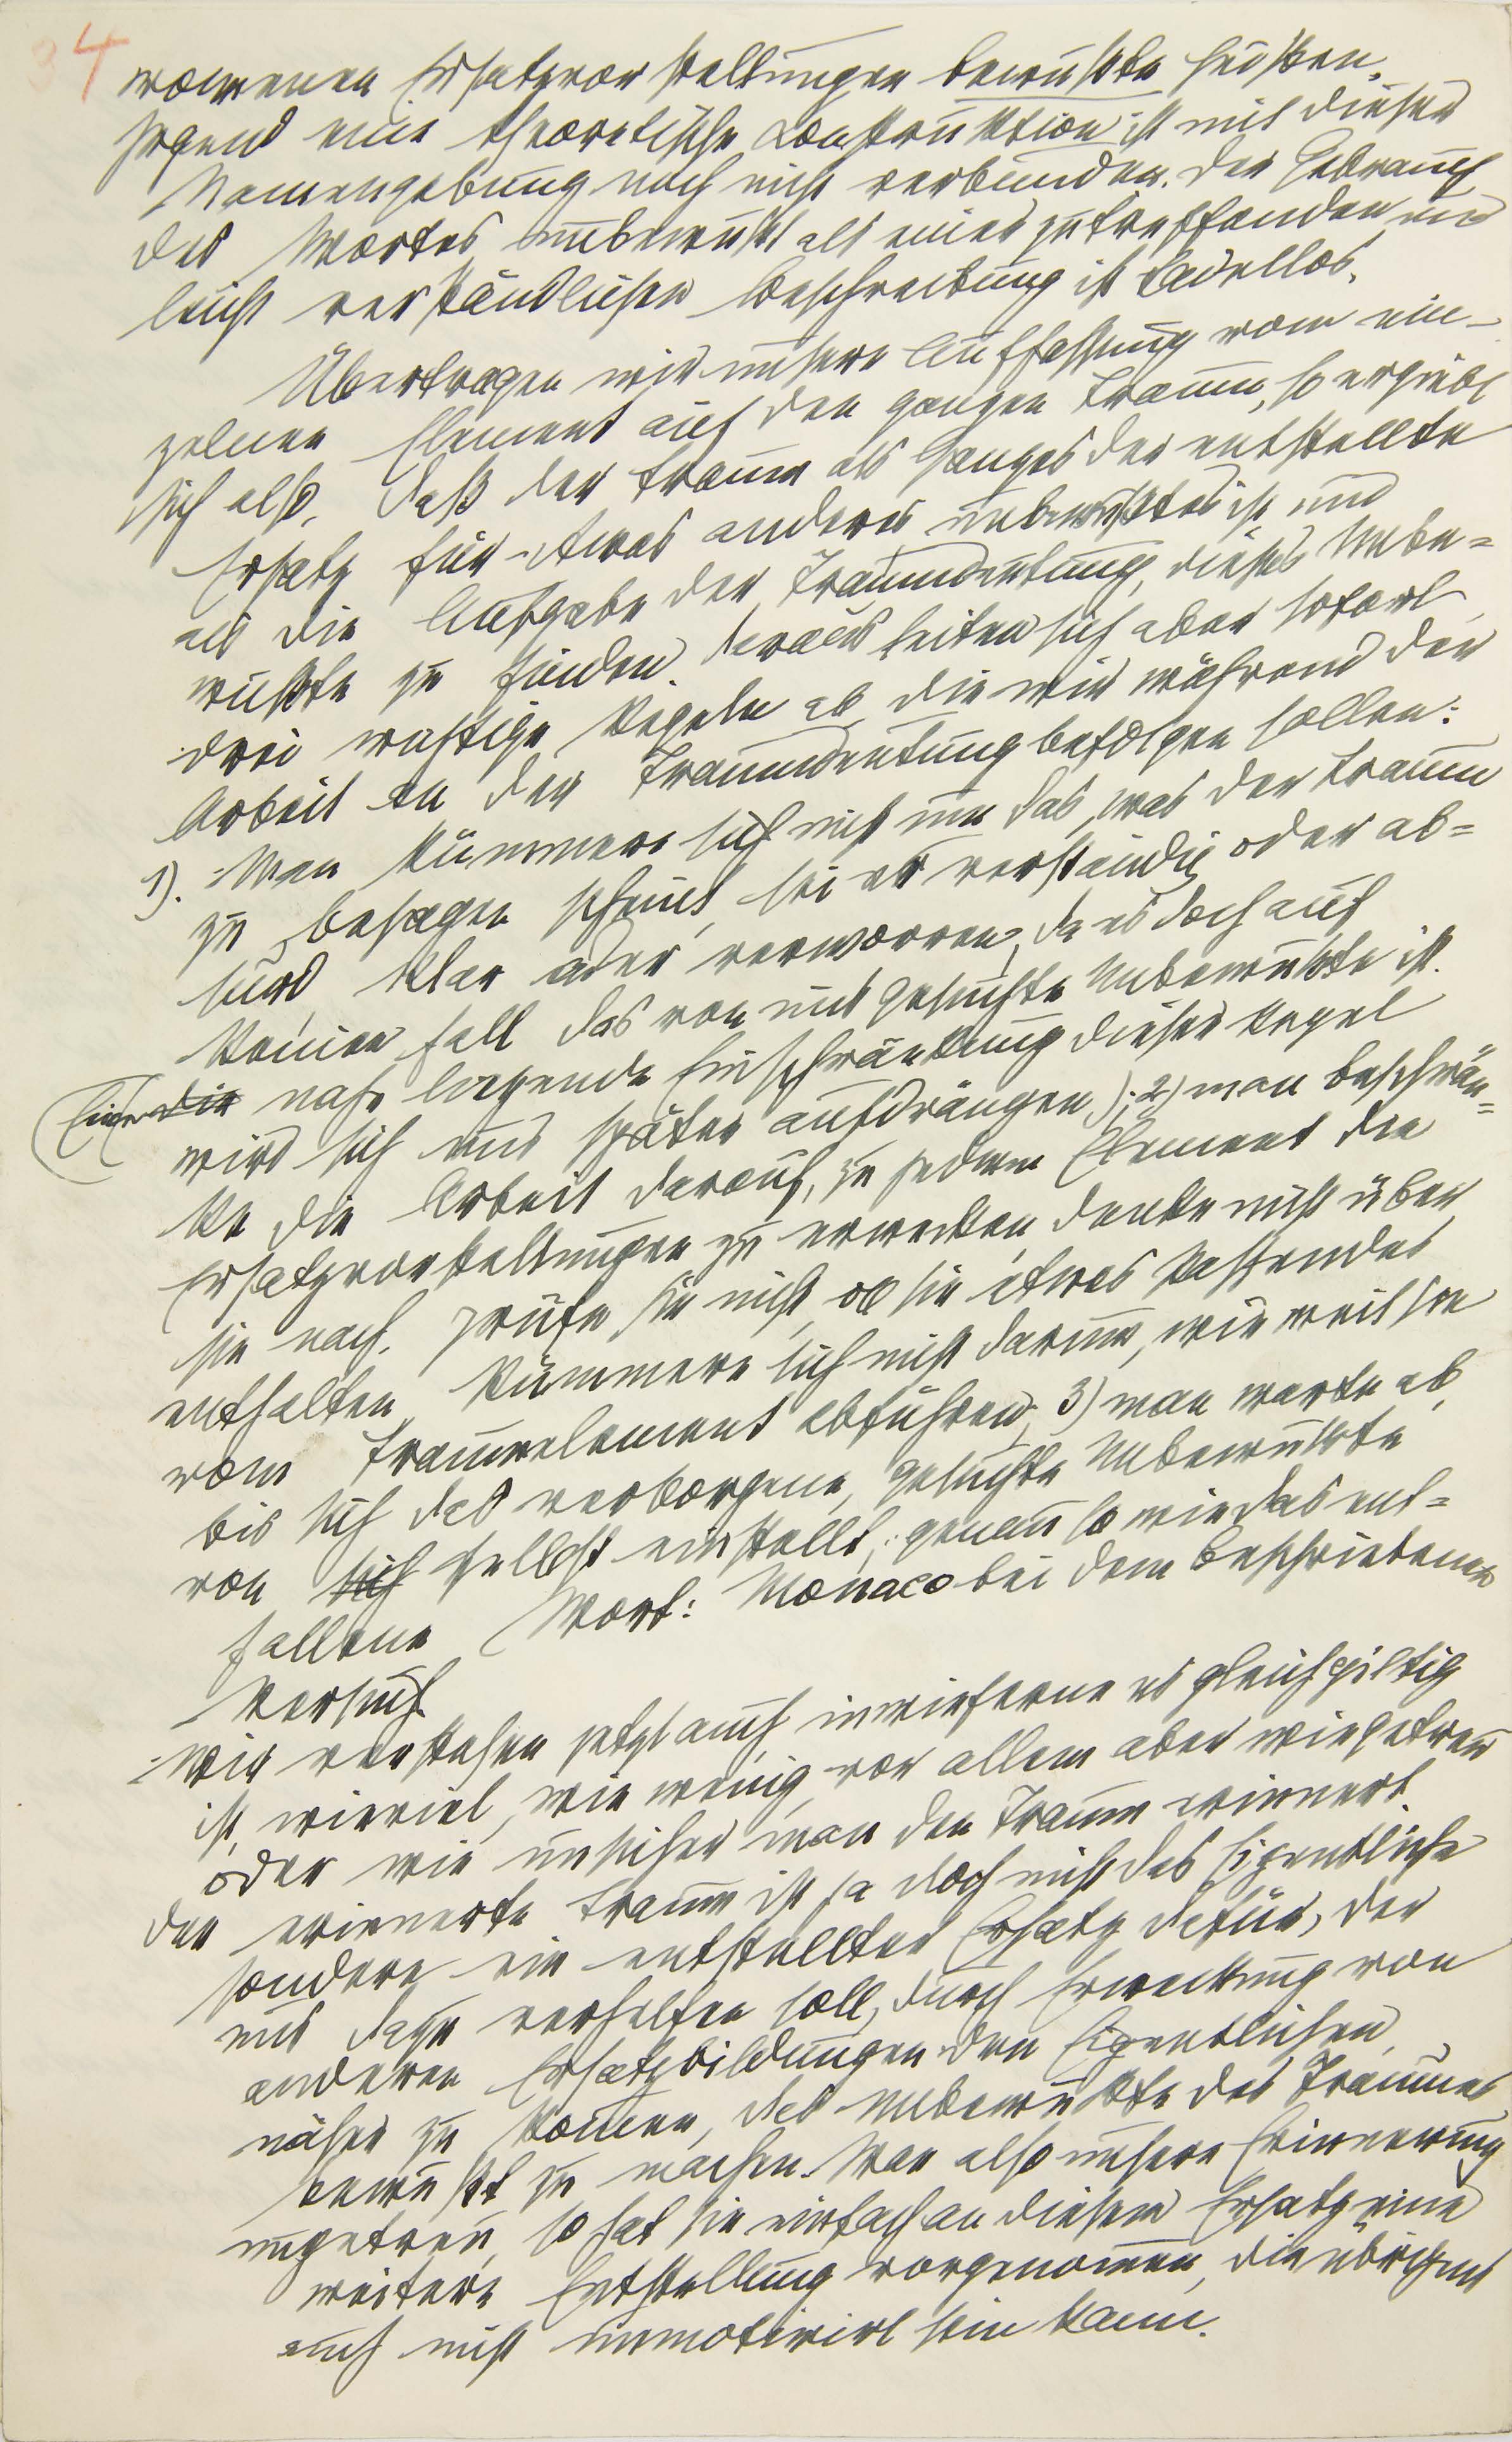 34
wonnenen Ersatzvorstellungen bewußte heißen.
Irgend eine theoretische Konstruktion ist mit dieser
Namengebung noch nicht verbunden. Der Gebrauch
des Wortes unbewußt als einer zutreffenden und
leicht verständlichen Beschreibung ist tadellos.
Übertragen wir unsere Auffassung vom ein-
zelnen Element auf den ganzen Traum, so ergiebt
sich also, daß der Traum als Ganzes der entstellte
Ersatz für etwas anderes unbewußtes ist und
als die Aufgabe der Traumdeutung, dieses Unbe=
wußte zu finden. Daraus leiten sich aber sofort
drei wichtige Regeln ab die wir während der
Arbeit an der Traumdeutung befolgen sollen:
1). Man kümmere sich nicht um das, was der Traum
zu besagen scheint, sei es verständig oder ab=
surd, klar oder verworren, da es doch auf
keinen Fall das von uns gesuchte Unbewußte ist.
(Eine die nahe liegende Einschränkung dieser Regel
wird sich uns später aufdrängen); 2) man beschrän=
ke die Arbeit darauf, zu jedem Element die
Ersatzvorstellungen zu erwecken, denke nicht über
sie nach, prüfe sie nicht, ob sie etwas Passendes
enthalten, kümmere sich nicht darum, wie weit sie
vom Traumelement abführen; 3) man warte ab,
bis sich das verborgene, gesuchte Unbewußte
von sich selbst einstellt, genau so wie das ent=
fallene Wort: Monaco bei dem beschriebenen
Versuch.
Wir verstehen jetzt auch, inwieferne es gleichgiltig
ist, wieviel, wie wenig, vor allem aber wie getreu
oder wie unsicher man den Traum erinnert.
Der erinnerte Traum ist ja doch nicht das Eigentliche
sondern ein entstellter Ersatz dafür, der
uns dazu verhelfen soll, durch Erweckung von
anderen Ersatzbildungen dem Eigentlichen
näher zu kommen, das Unbewußte des Traumes
bewußt zu machen. War also unsere Erinnerung
ungetreu, so hat sie einfach an diesem Ersatz eine
weitere Entstellung vorgenommen, die übrigens
auch nicht unmotivirt sein kann.